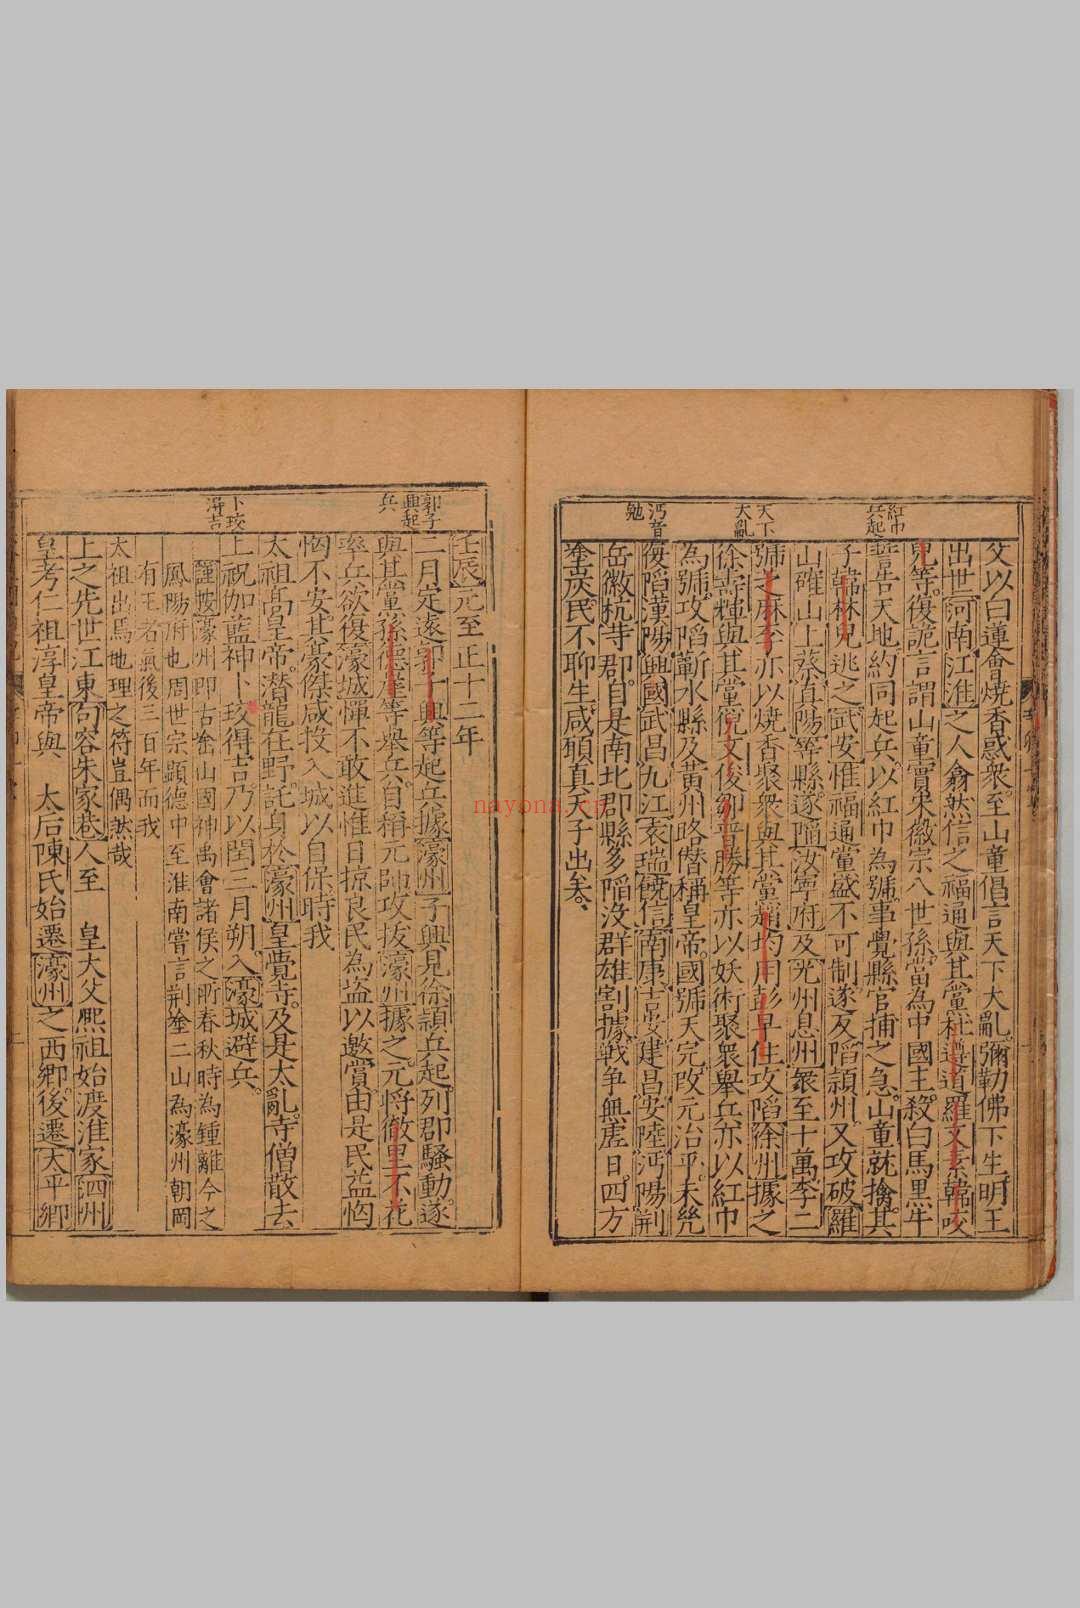 紅巾兵起
天下大亂
沔音勉
父以白蓮會燒香惑衆至山童倡言天下大亂彌勒佛下生明王
出世河南江淮之人翕然信之福通與其黨杜遵道羅文素韓咬
兒等復詭言謂山童實宋徽宗八世孫當為中國主殺白馬黑牛
誓告天地約同起兵以紅巾為號事覺縣官捕之急山童就擒其
子韓林兒逃之武安惟福通黨盛不可制遂反陷頴州又攻破羅
山確山上蔡真陽等縣遂陷汝寧府及光州息州衆至十萬李二
號芝麻李亦以燒香聚衆與其黨趙均用彭早住攻陷徐州據之
徐壽輝與其黨倪文俊鄒普勝等亦以妖術聚衆舉兵亦以紅巾
為號攻陷蘄水縣及黃州路僣稱皇帝國號天完改元治平未幾
復陷漢陽興國武昌九江袁瑞饒信南康吉安建昌安陸沔陽荆
岳徽杭寺郡自是南北郡縣多陷沒群雄割據戰争無虗日四方
塗炭民不聊生咸願真天子出矣
郭子興起兵
卜珓得吉
壬辰元至正十二年
二月定遠郭子興等起兵據濠州子興見徐頴兵起列郡騷動遂
與其黨孫德崖等舉兵自稱元帥攻拔濠州據之元將徹里不花
率兵欲復濠城憚不敢進惟日掠良民為盗以邀賞由是民益恟
恟不安其豪傑咸投入城以自保時我
太祖高皇帝潜龍在野託身於濠州皇覺寺及是太亂寺僧散去
上祝伽藍神卜珓得吉乃以閏三月朔入濠城避兵
謹按濠州即古塗山國神禹會諸侯之所春秋時為鍾離今之
鳳陽府也周世宗顯德中至淮南嘗言荆塗二山為濠州朝岡
有王者氣後三百年而我
太祖出焉地理之符豈偶然哉
上之先世江東句容朱家巷人至 皇大父熙祖始渡淮家泗州
皇考仁祖淳皇帝與 太后陳氏始遷濠州之西鄉後遷太平鄉
nayona.cn